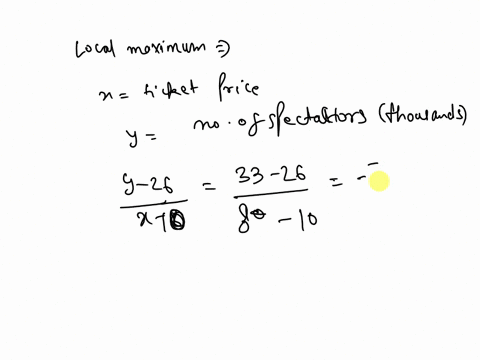 Local maximum ⇒
x = ticket price
y = no. of spectators (thousands)
y-26 / x-10 = 33-26 / 8-10 = -